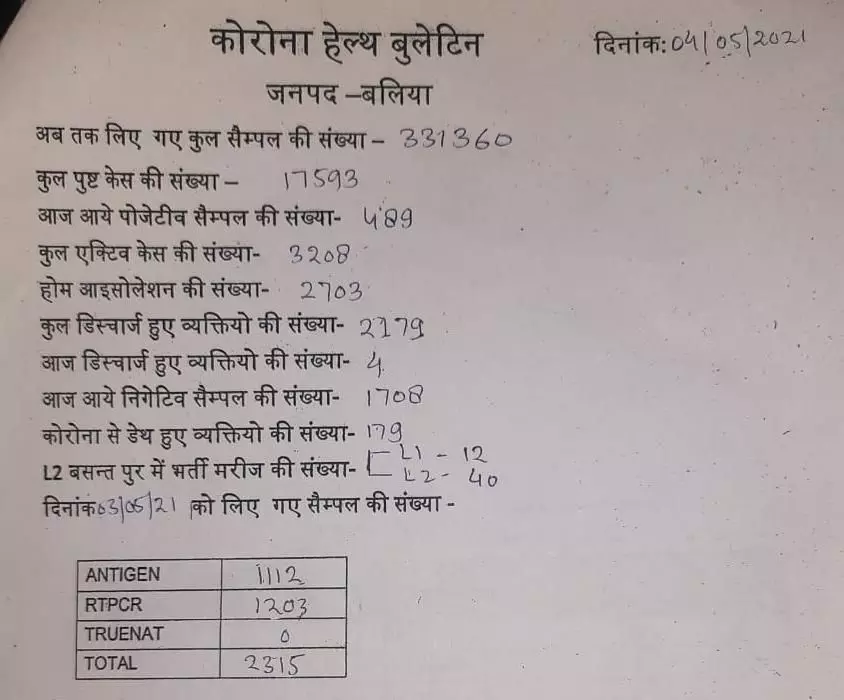 कोरोना हेल्थ बुलेटिन दिनांक: 04/05/2021
जनपद –बलिया
अब तक लिए गए कुल सैम्पल की संख्या – 331360
कुल पुष्ट केस की संख्या – 17593
आज आये पोजेटीव सैम्पल की संख्या- 489
कुल एक्टिव केस की संख्या- 3208
होम आइसोलेशन की संख्या- 2703
कुल डिस्चार्ज हुए व्यक्तियो की संख्या- 2179
आज डिस्चार्ज हुए व्यक्तियो की संख्या- 4
आज आये निगेटिव सैम्पल की संख्या- 1708
कोरोना से डेथ हुए व्यक्तियो की संख्या- 179
L2 बसन्त पुर में भर्ती मरीज की संख्या- L1 - 12
L2 - 40
दिनांक 03/05/21 को लिए गए सैम्पल की संख्या -
ANTIGEN 1112
RTPCR 1203
TRUENAT 0
TOTAL 2315